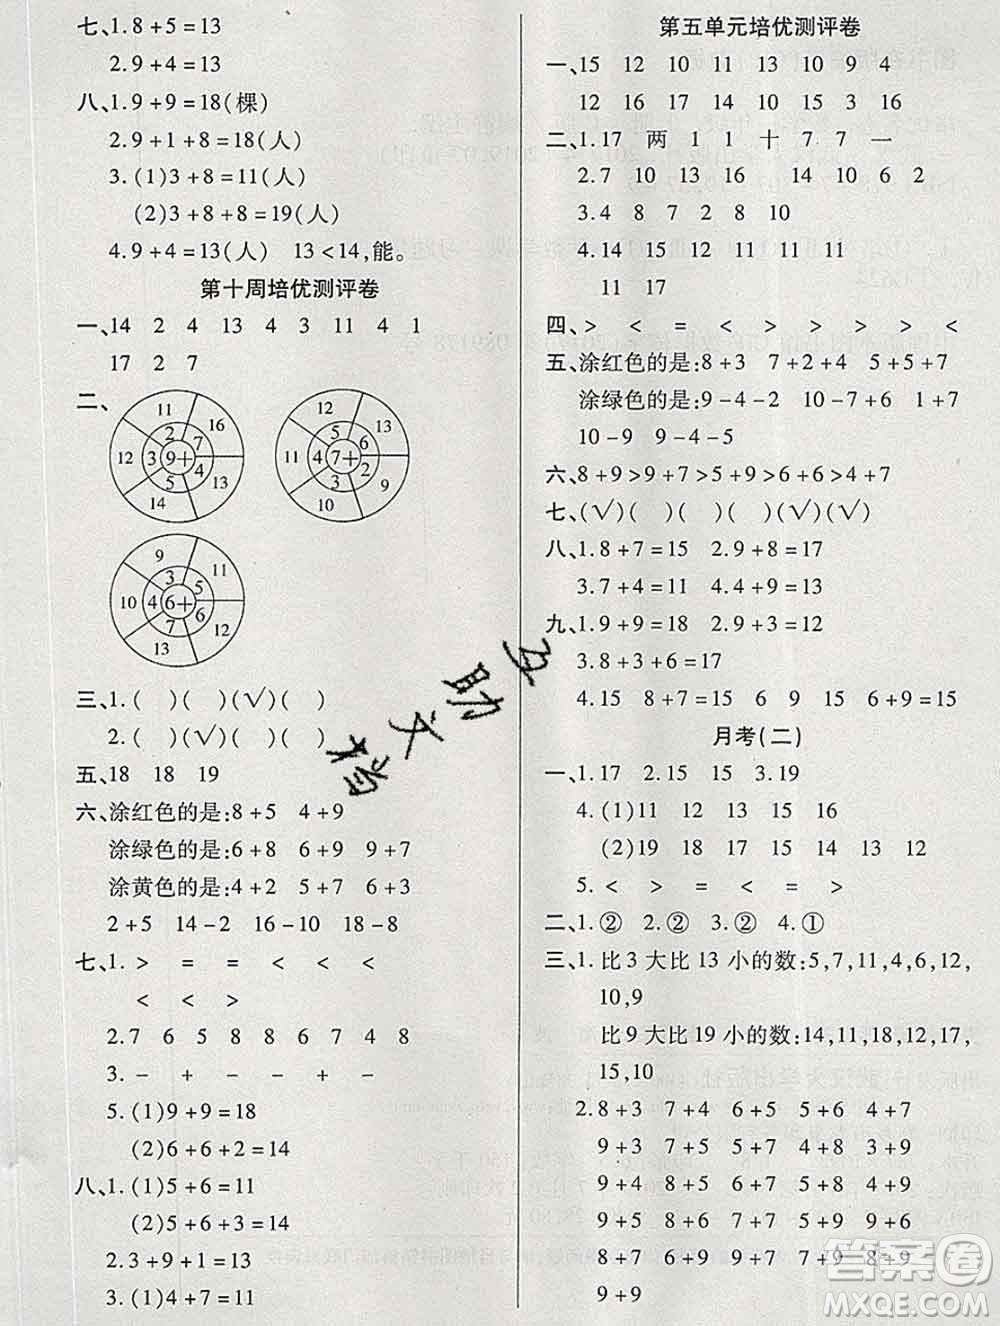 七、1.8+5=13
2.9+4=13
八、1.9+9=18(棵)
2.9+1+8=18(人)
3.(1)3+8=11(人)
(2)3+8+8=19(人)
4.9+4=13(人) 13<14,能。
第十周培优测评卷
一、14 2 4 13 4 3 11 4 1
17 2 7
二、
11 16 13 14 12
2 7 4 5 3
9+
12 13 9 10 11
5 6 2 3 4
7+
9 11 12 13 10
3 5 6 7 4
6+
三、1.( )( )(√)( )
2.( )(√)( )( )
五、18 18 19
六、涂红色的是:8+5 4+9
涂绿色的是:6+8 6+9 9+7
涂黄色的是:4+2 5+7 6+3
2+5 14-2 16-10 18-8
七、1. > = = < < <
< < >
2.7 6 5 8 8 6 7 4 8
3. - + - - + +
5.(1)9+9=18
(2)6+6+2=14
八、1.(1)5+6=11
(2)5+6+3=14
2.3+9+1=13
3.(1)4+7=11
第五单元培优测评卷
一、15 12 10 11 13 10 9 4
12 16 17 15 13 9 18
二、1.17 两 1 1 十 7 7 一
2.7 10 13 10 14 10 6 2
3.4 8 7 2 8 10
4.14 15 12 11 11 11
11 17
四、> < = < > > > <
五、涂红色的是:8+3 7+2+4 5+5+7
涂绿色的是:9-4-2 10-7+6 1+7
10-9 9-5-4
六、8+9>9+7>5+9>6+6>4+7
七、(√)( )( )( )(√)(√)
八、1.8+7=15 2.9+8=17
3.7+4=11 4.9+4=13
九、1.9+9=18 2.9+4=13
3.8+3+6=17
4.15 8+7=15 6 9 15 6+9=15
月考(二)
一、1.17 2.15 15 3.19
4.(1)11 12 13 15 16
(2)19 18 15 13 12
5. < > < = > <
二、1.② 2.② 3.② 4.①
三、1.比3大比13小的数:5,7,11,4,6,12,
10,9
比9大比19小的数:14,11,18,12,17,
15,10
2.8+3 7+4 6+5 5+6 4+7
9+3 8+4 7+5 4+8 3+9
9+4 8+5 7+6 5+8 4+9
9+5 8+6 7+7 5+9 9+6
8+7 9+7 8+8 9+8 8+9
9+9
互助文档
答案圈
MXQE.COM